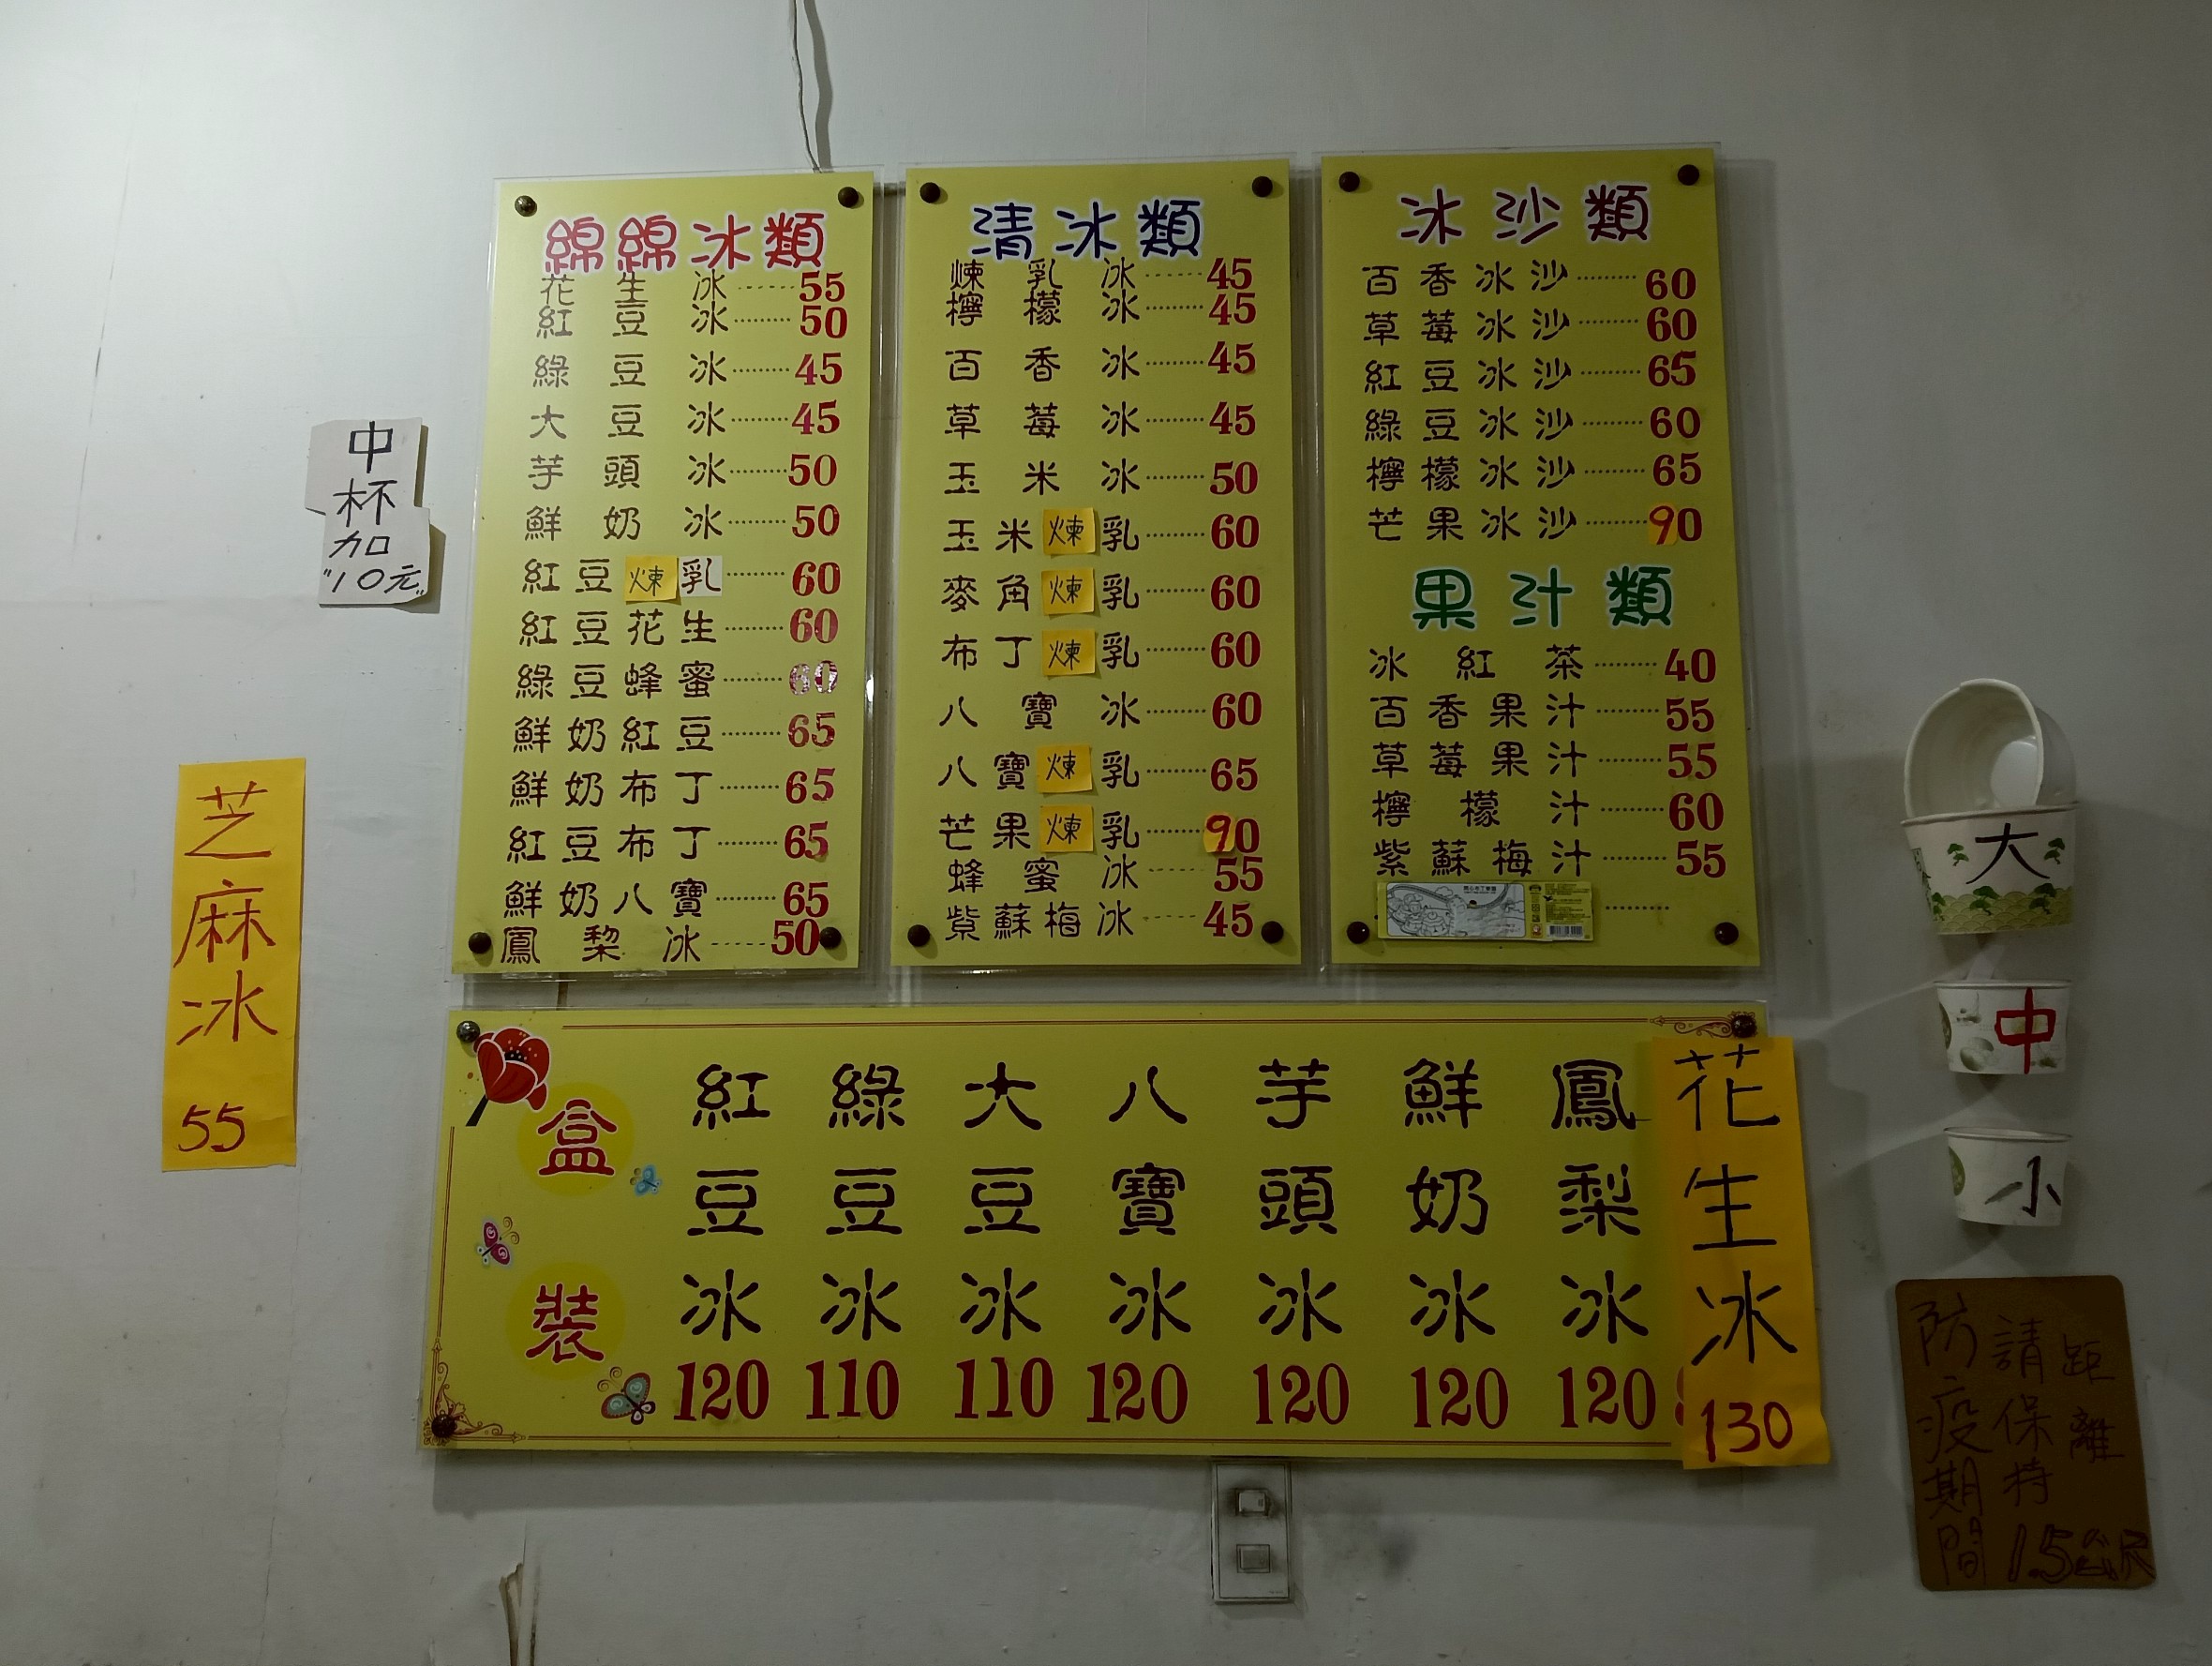 綿綿冰類
花生冰-----55
紅豆冰········50
綠豆冰········45
大豆冰········45
芋頭冰········50
鮮奶冰········50
紅豆煉乳········60
紅豆花生········60
綠豆蜂蜜········60
鮮奶紅豆········65
鮮奶布丁········65
紅豆布丁········65
鮮奶八寶········65
鳳梨冰-----50
清冰類
煉乳冰-----45
檸檬冰········45
百香冰········45
草莓冰········45
玉米冰········50
玉米煉乳········60
麥角煉乳········60
布丁煉乳········60
八寶冰········60
八寶煉乳········65
芒果煉乳········90
蜂蜜冰-----55
紫蘇梅冰----45
冰沙類
百香冰沙········60
草莓冰沙········60
紅豆冰沙········65
綠豆冰沙········60
檸檬冰沙········65
芒果冰沙········90
果汁類
冰紅茶········40
百香果汁········55
草莓果汁········55
檸檬汁········60
紫蘇梅汁········55
中
杯
加
"10元"
芝麻冰
55
盒裝
紅豆冰
120
綠豆冰
110
大豆冰
110
八寶冰
120
芋頭冰
120
鮮奶冰
120
鳳梨冰
120
花生冰
130
大
中
小
防疫期間
請保持
距離
1.5公尺